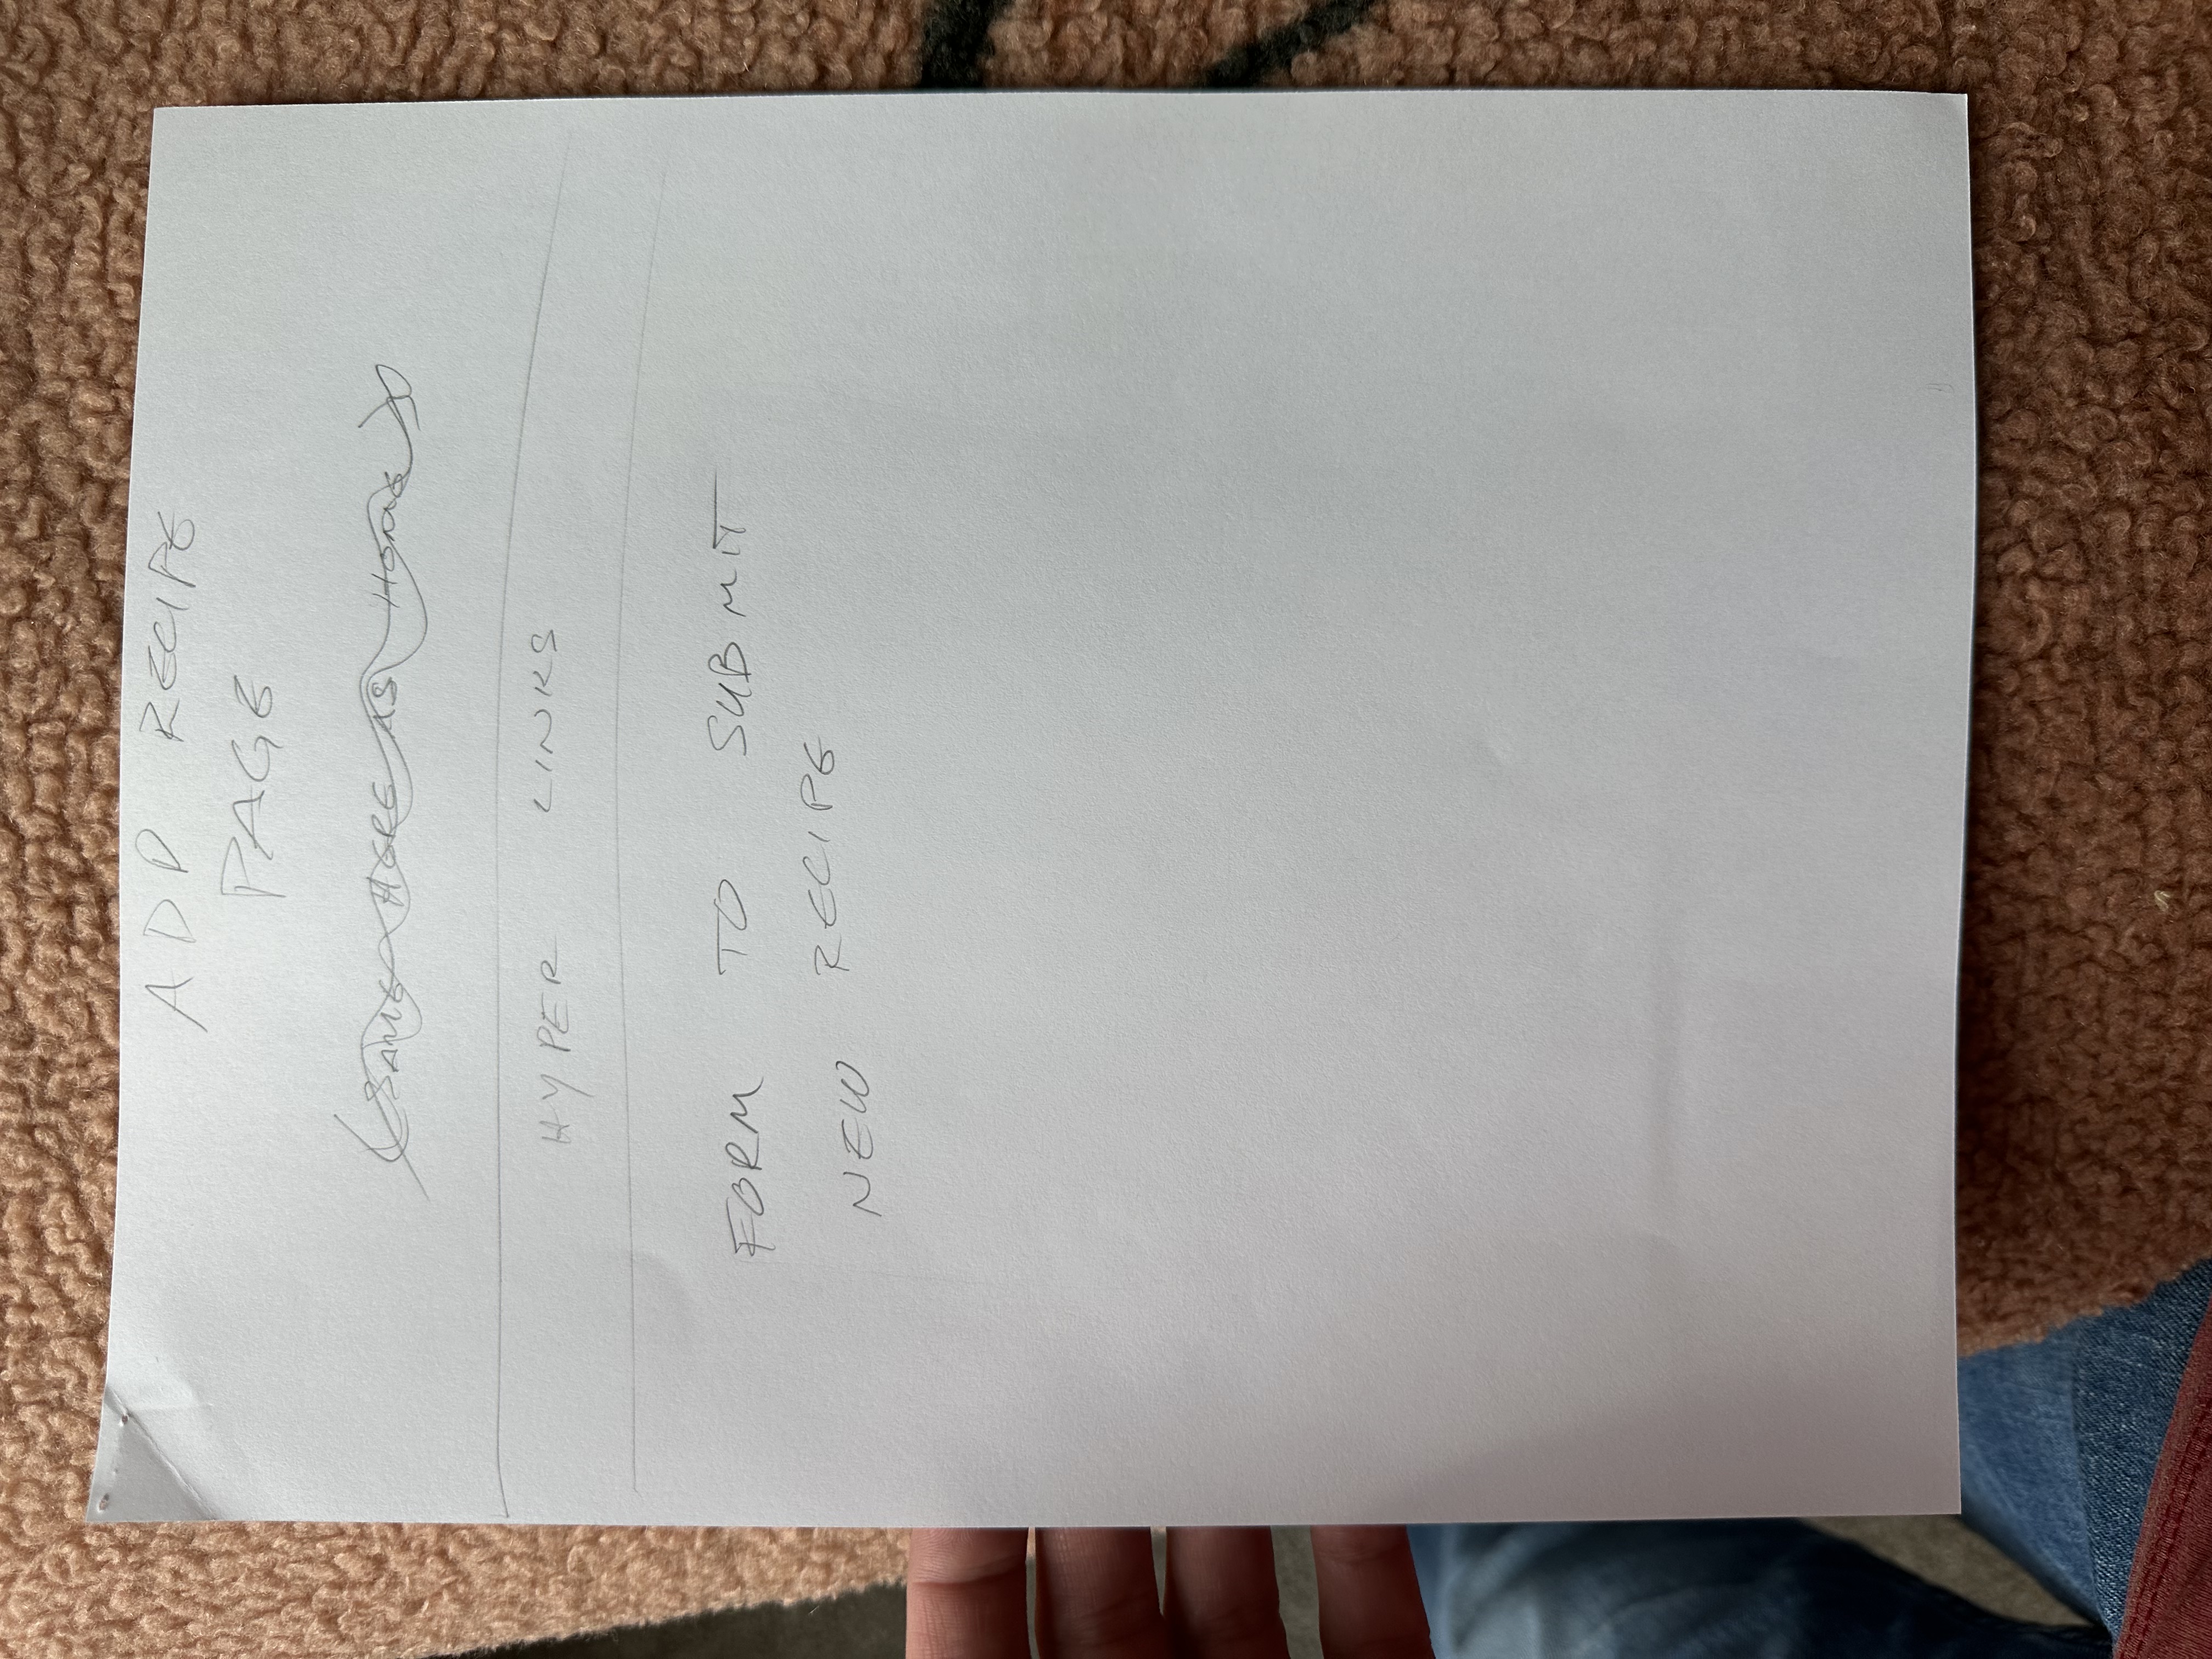 ADD RECIPE
PAGE
(SAME HERE AS HOME)
HYPER LINKS
FORM TO SUBMIT
NEW RECIPE